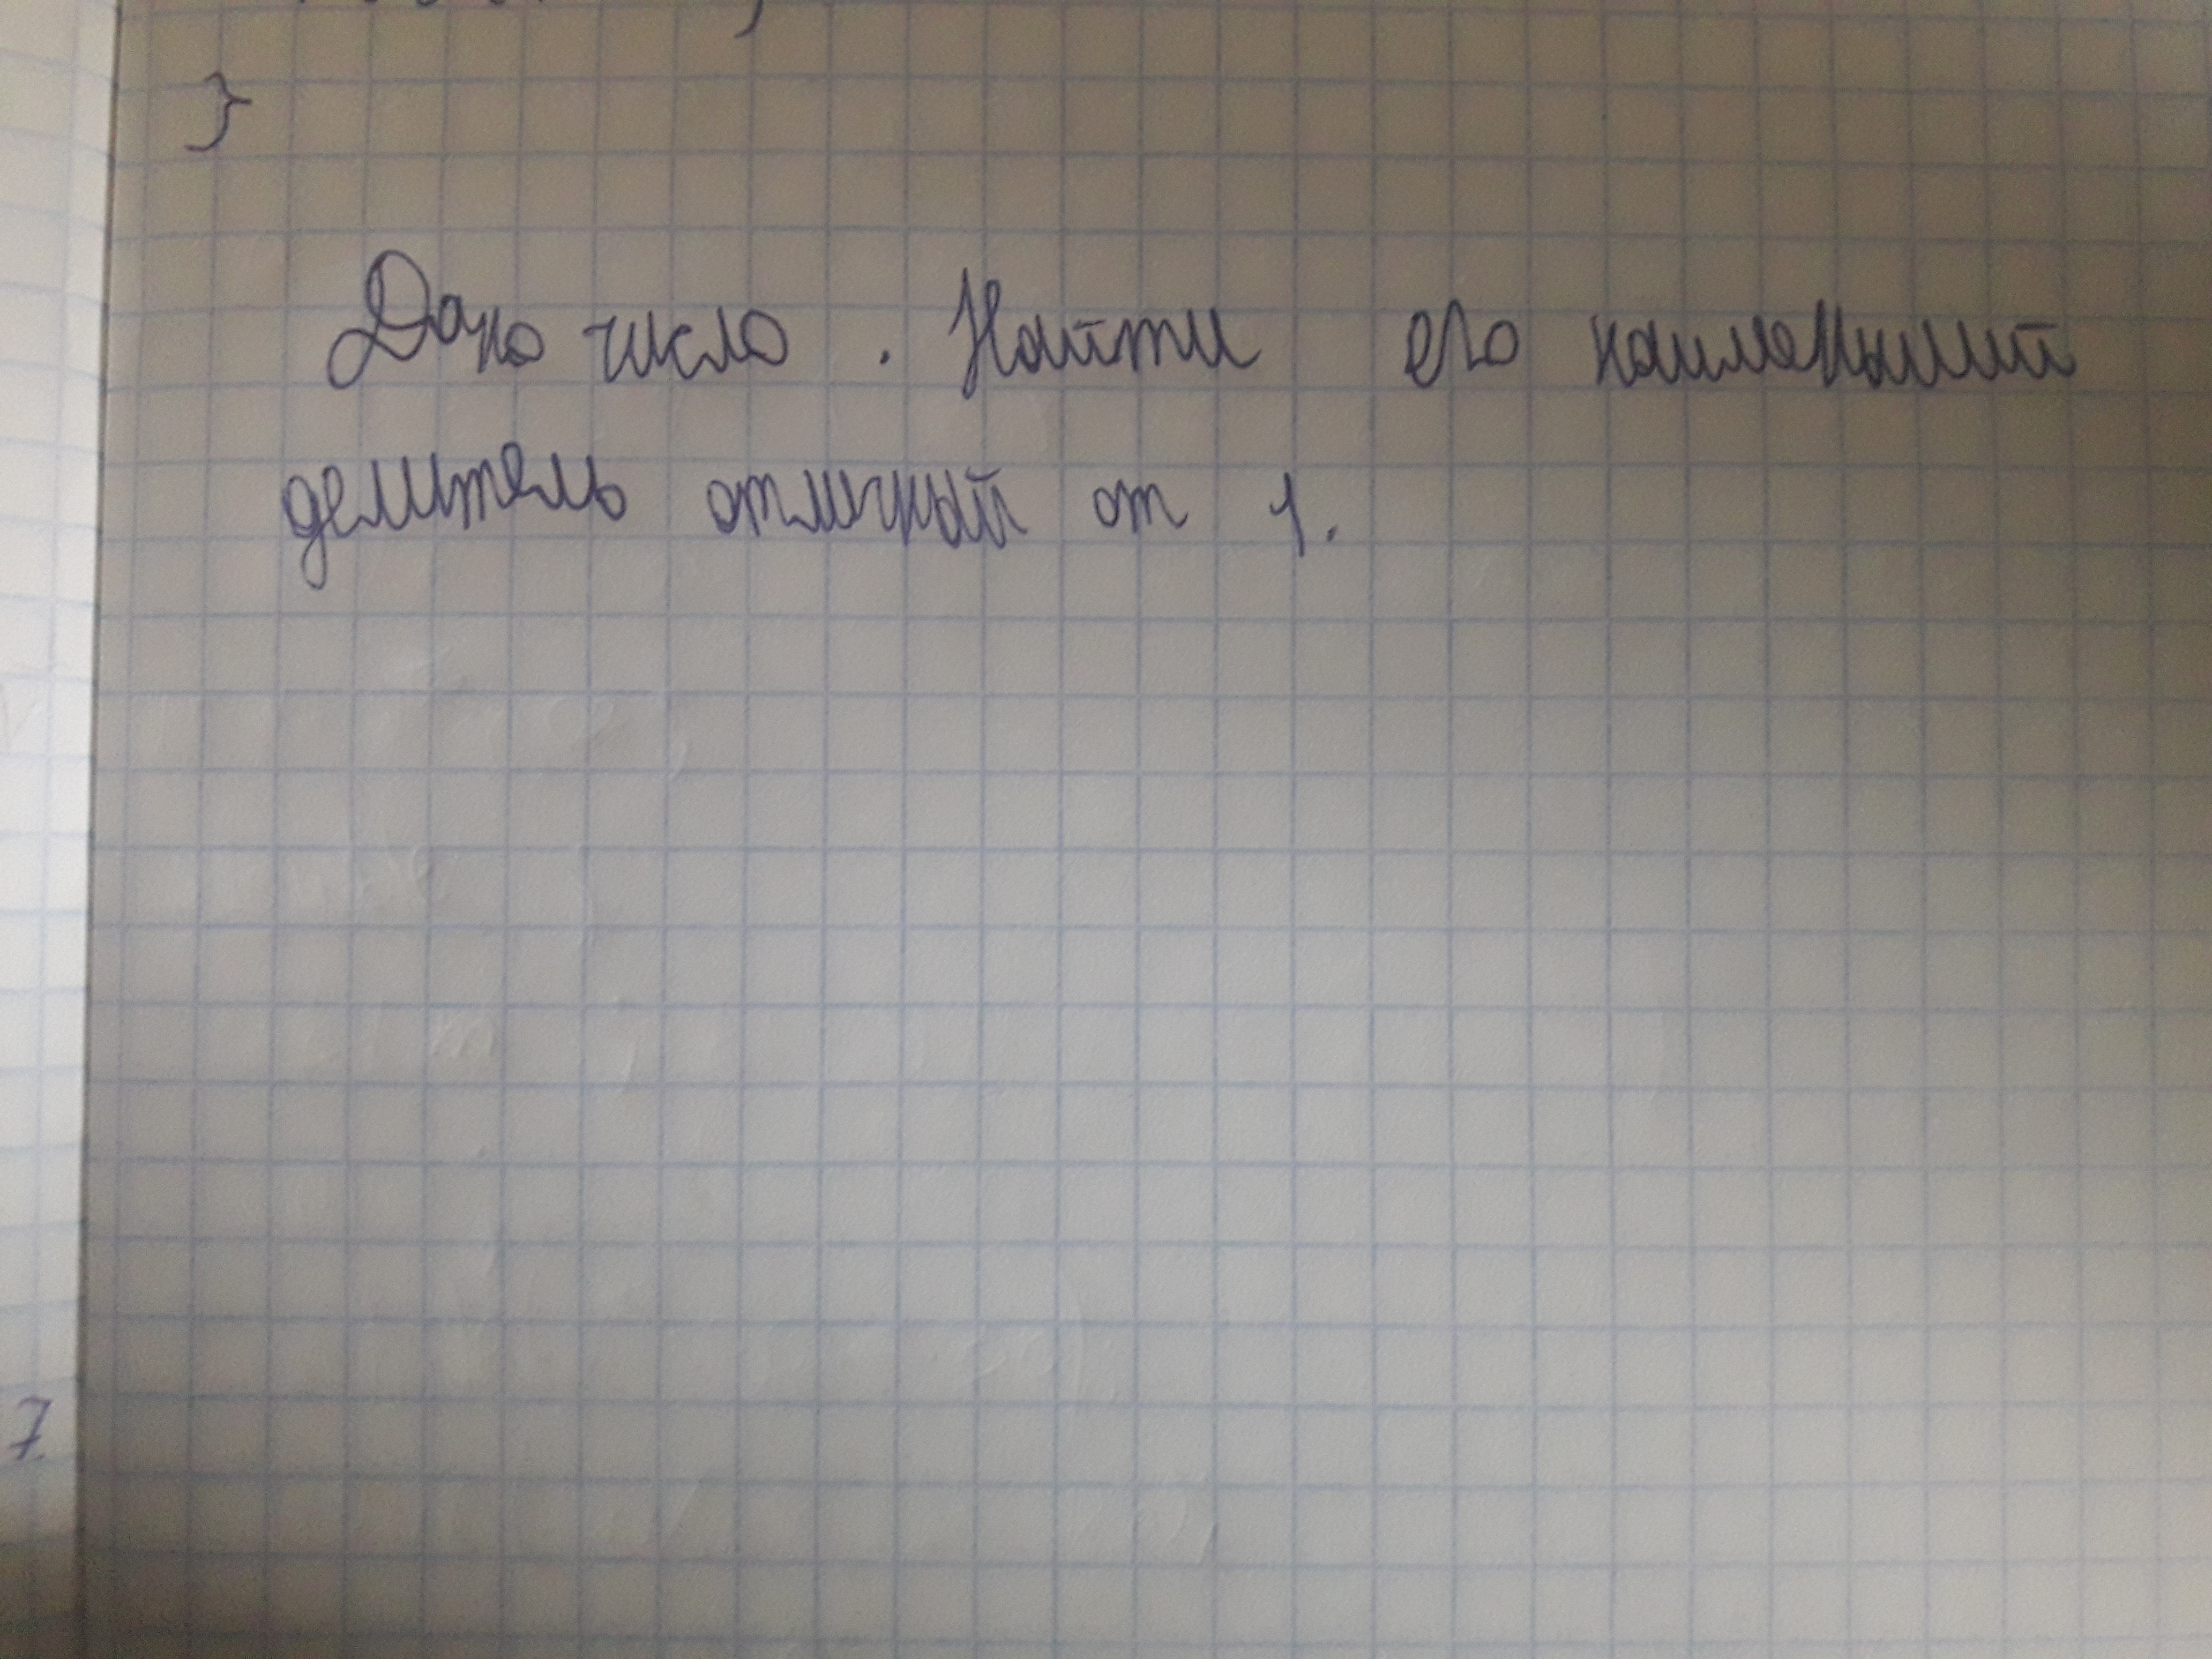 }
Дано число. Найти его наименьший
делитель отличный от 1.
7